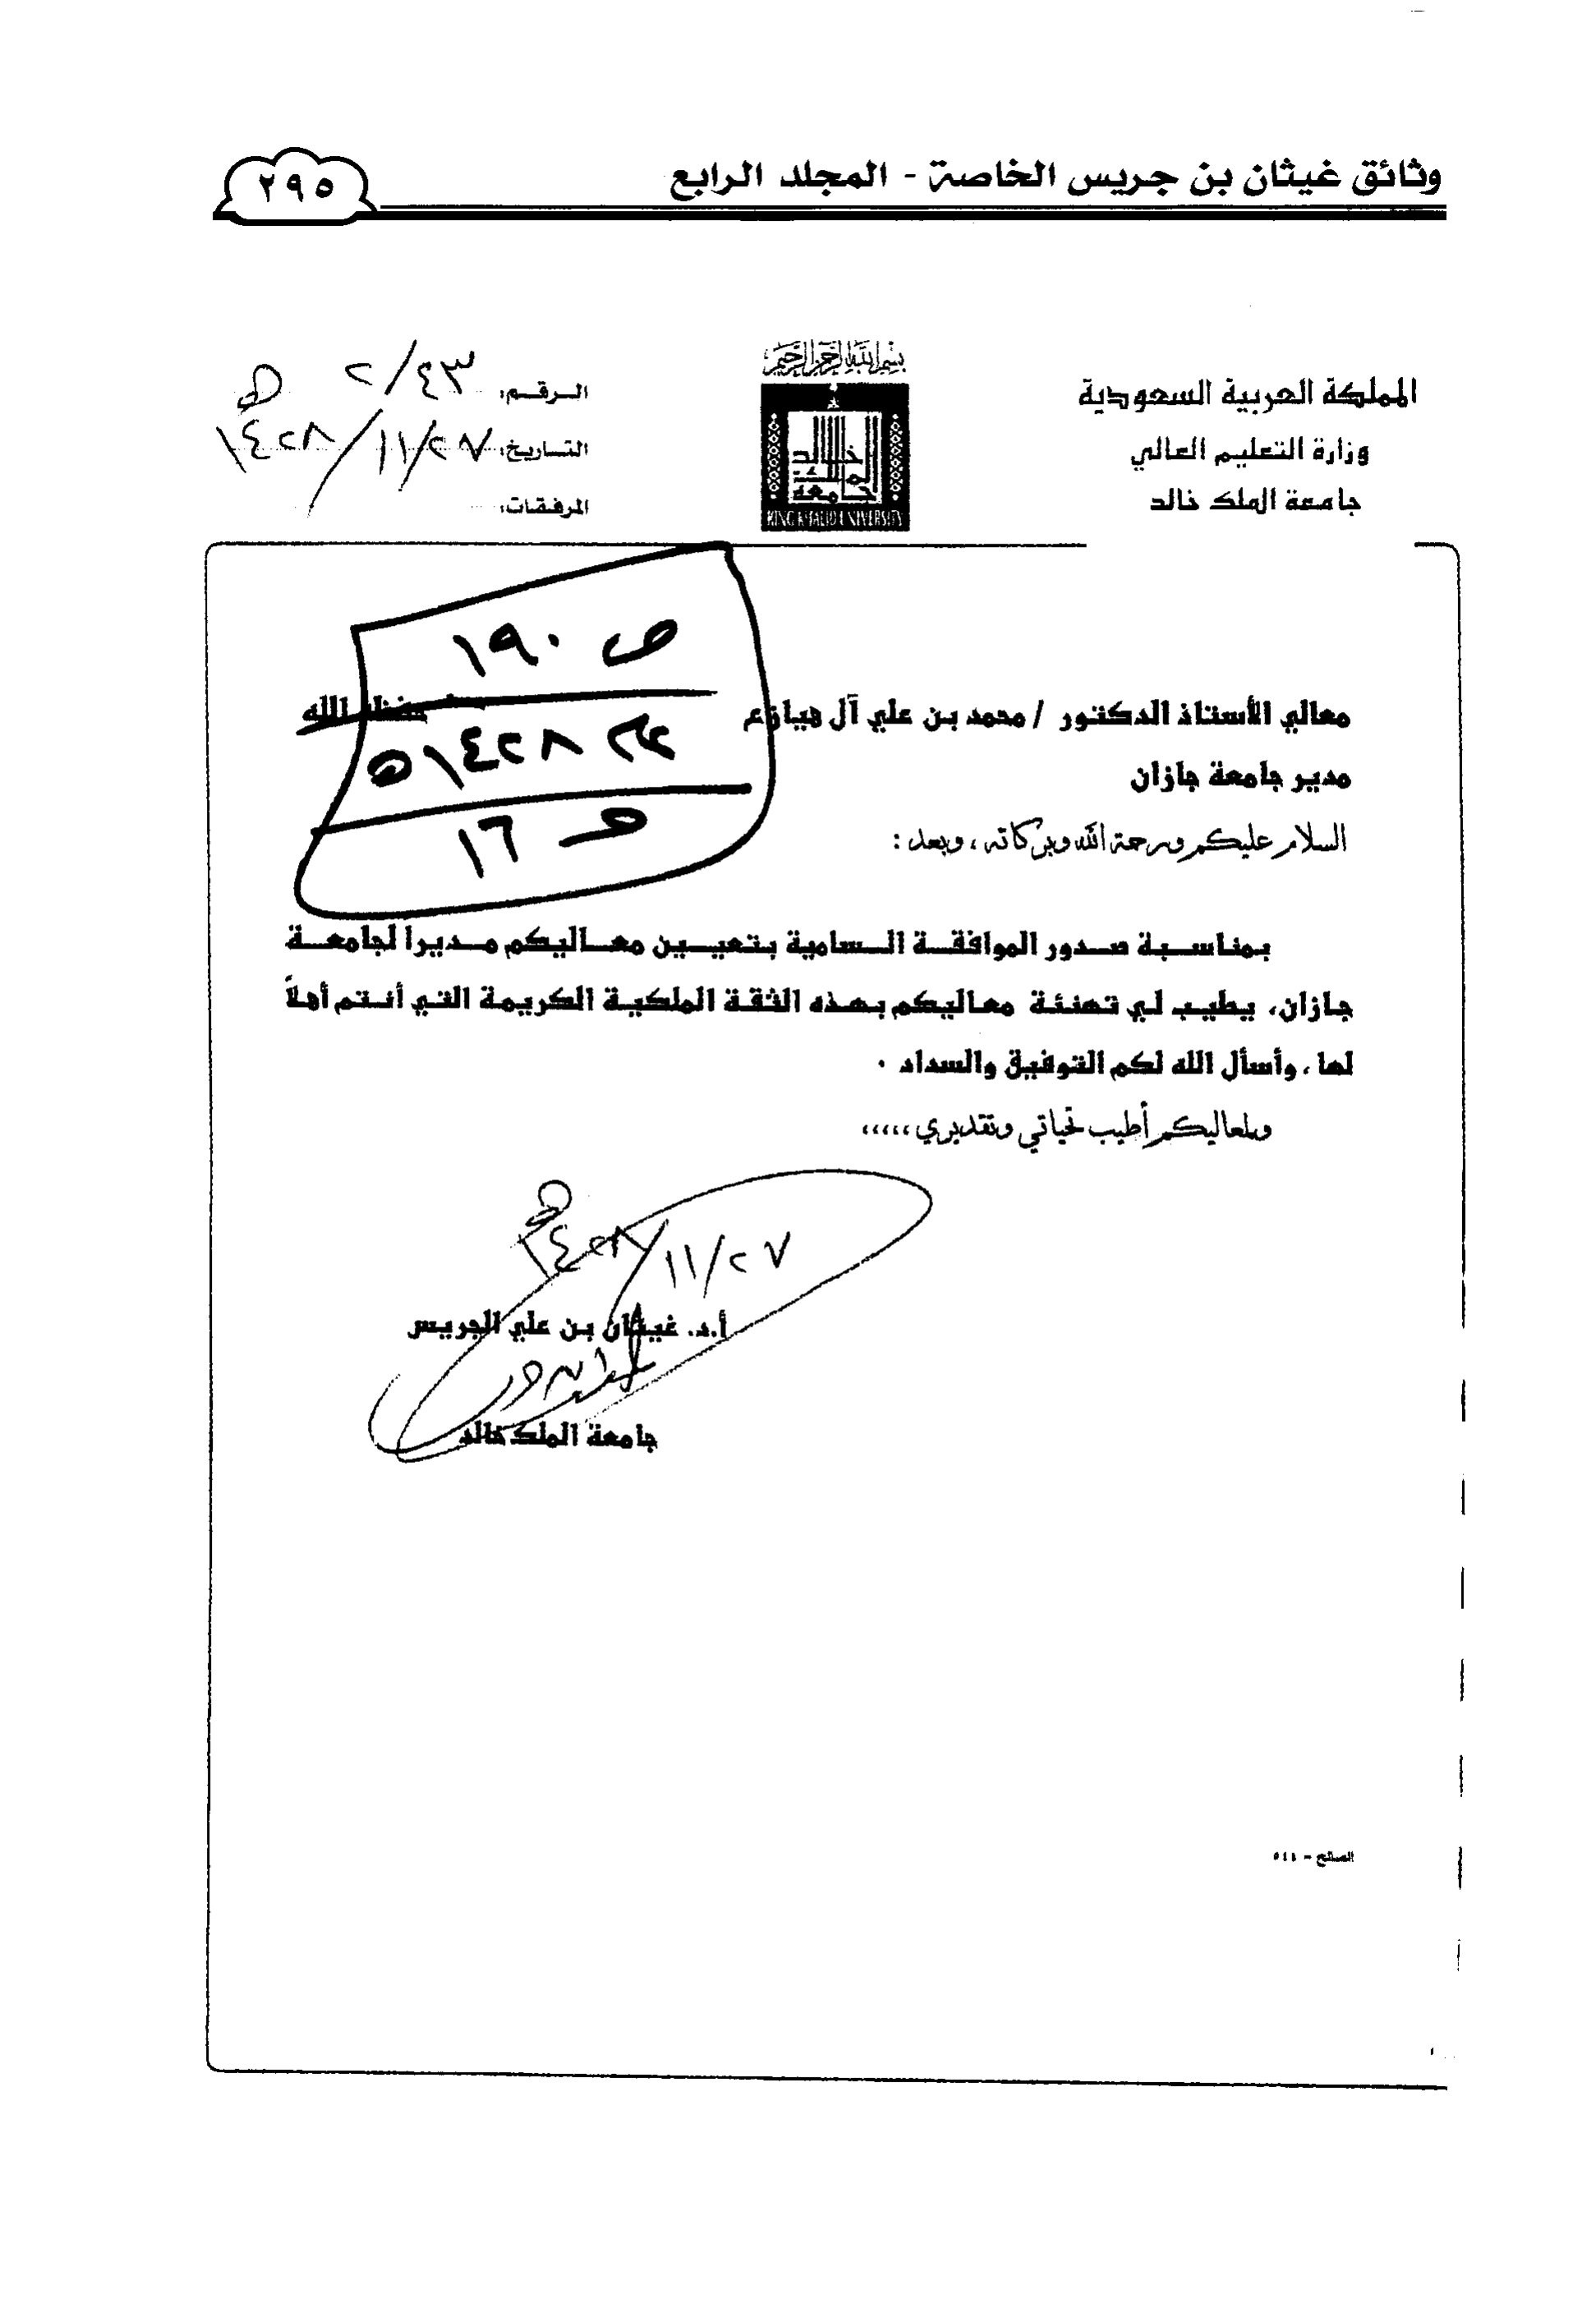 وثائق غيثان بن جريس الخاصة - المجلد الرابع
٢٩٥
بسم الله الرحمن الرحيم
المملكة العربية السعودية
وزارة التعليم العالي
جامعة الملك خالد
جامعة الملك خالد
KING KHALID UNIVERSITY
الرقم: ٢/٤٣
التاريخ: ٢٧/١١/١٤٢٨ هـ
المرفقات:
ص ١٩٠
١٤٢٨هـ
١٦
معالي الأستاذ الدكتور / محمد بن علي آل هيازع حفظه الله
مدير جامعة جازان
السلام عليكم ورحمة الله وبركاته ، وبعد :
بمناسبة صدور الموافقة السامية بتعيين معاليكم مديرا لجامعة
جازان، يطيب لي تهنئة معاليكم بهذه الثقة الملكية الكريمة التي أنتم أهلاً
لها ، وأسأل الله لكم التوفيق والسداد ٠
ولمعاليكم أطيب تحياتي وتقديري ،،،،،
٢٧/١١/١٤٢٨هـ
أ.د. غيثان بن علي الجريس
جامعة الملك خالد
الصالح - ٥٤٤